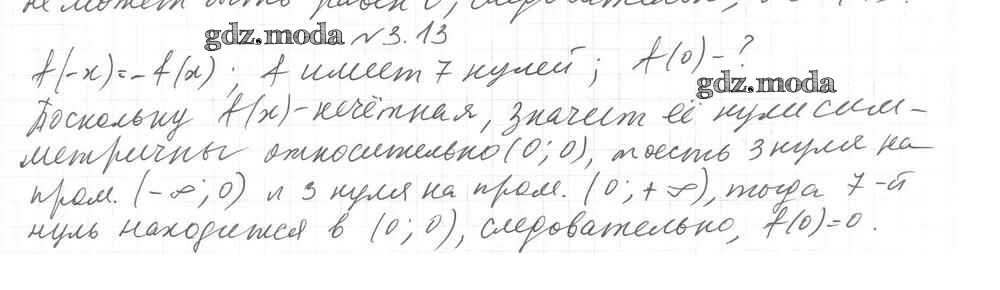 не может быть равен 0, следовательно,
gdz.moda №3.13
f(-x)=-f(x); f имеет 7 нулей; f(0)-?
gdz.moda
Поскольку f(x)-нечётная, значит её нули сим-
метричны относительно (0;0), то есть 3 нуля на
пром. (-∞;0) и 3 нуля на пром. (0;+∞), тогда 7-й
нуль находится в (0;0), следовательно, f(0)=0.